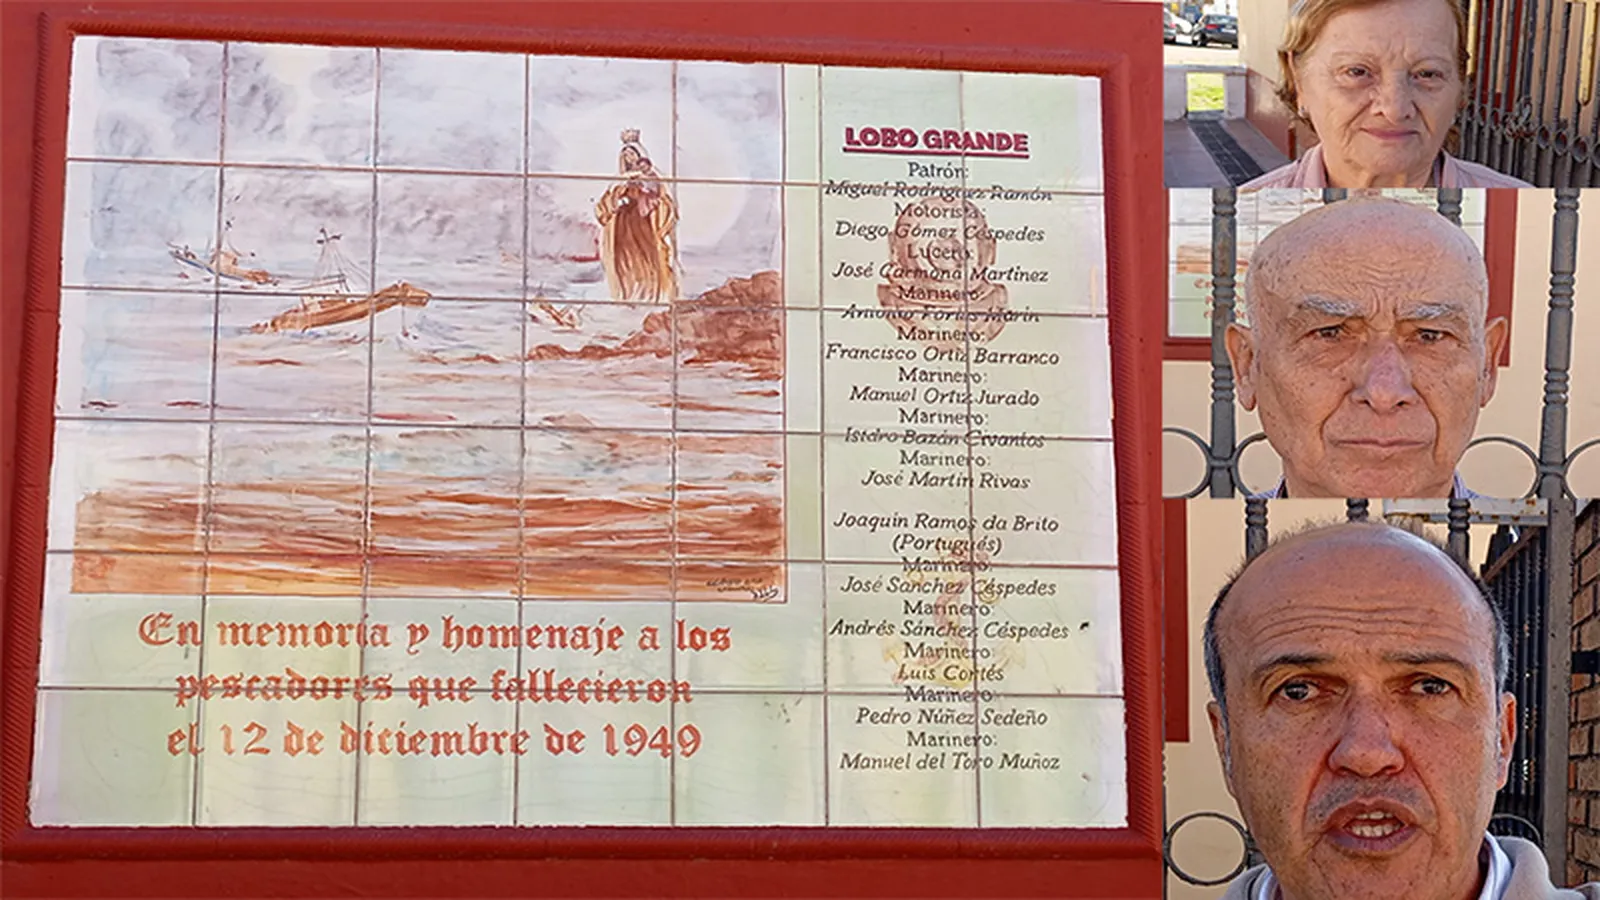 En memoria y homenaje a los
pescadores que fallecieron
el 12 de diciembre de 1949
LOBO GRANDE
Patrón:
Miguel Rodriguez Ramón
Motorista:
Diego Gómez Céspedes
Lucero:
José Carmona Martinez
Marinero:
Antonio Fortes Marin
Marinero:
Francisco Ortiz Barranco
Marinero:
Manuel Ortiz Jurado
Marinero:
Isidro Bazán Civantos
Marinero:
José Martin Rivas
Joaquin Ramos da Brito
(Portugués)
Marinero:
José Sanchez Céspedes
Marinero:
Andrés Sánchez Céspedes
Marinero:
Luis Cortés
Marinero:
Pedro Núñez Sedeño
Marinero:
Manuel del Toro Muñoz